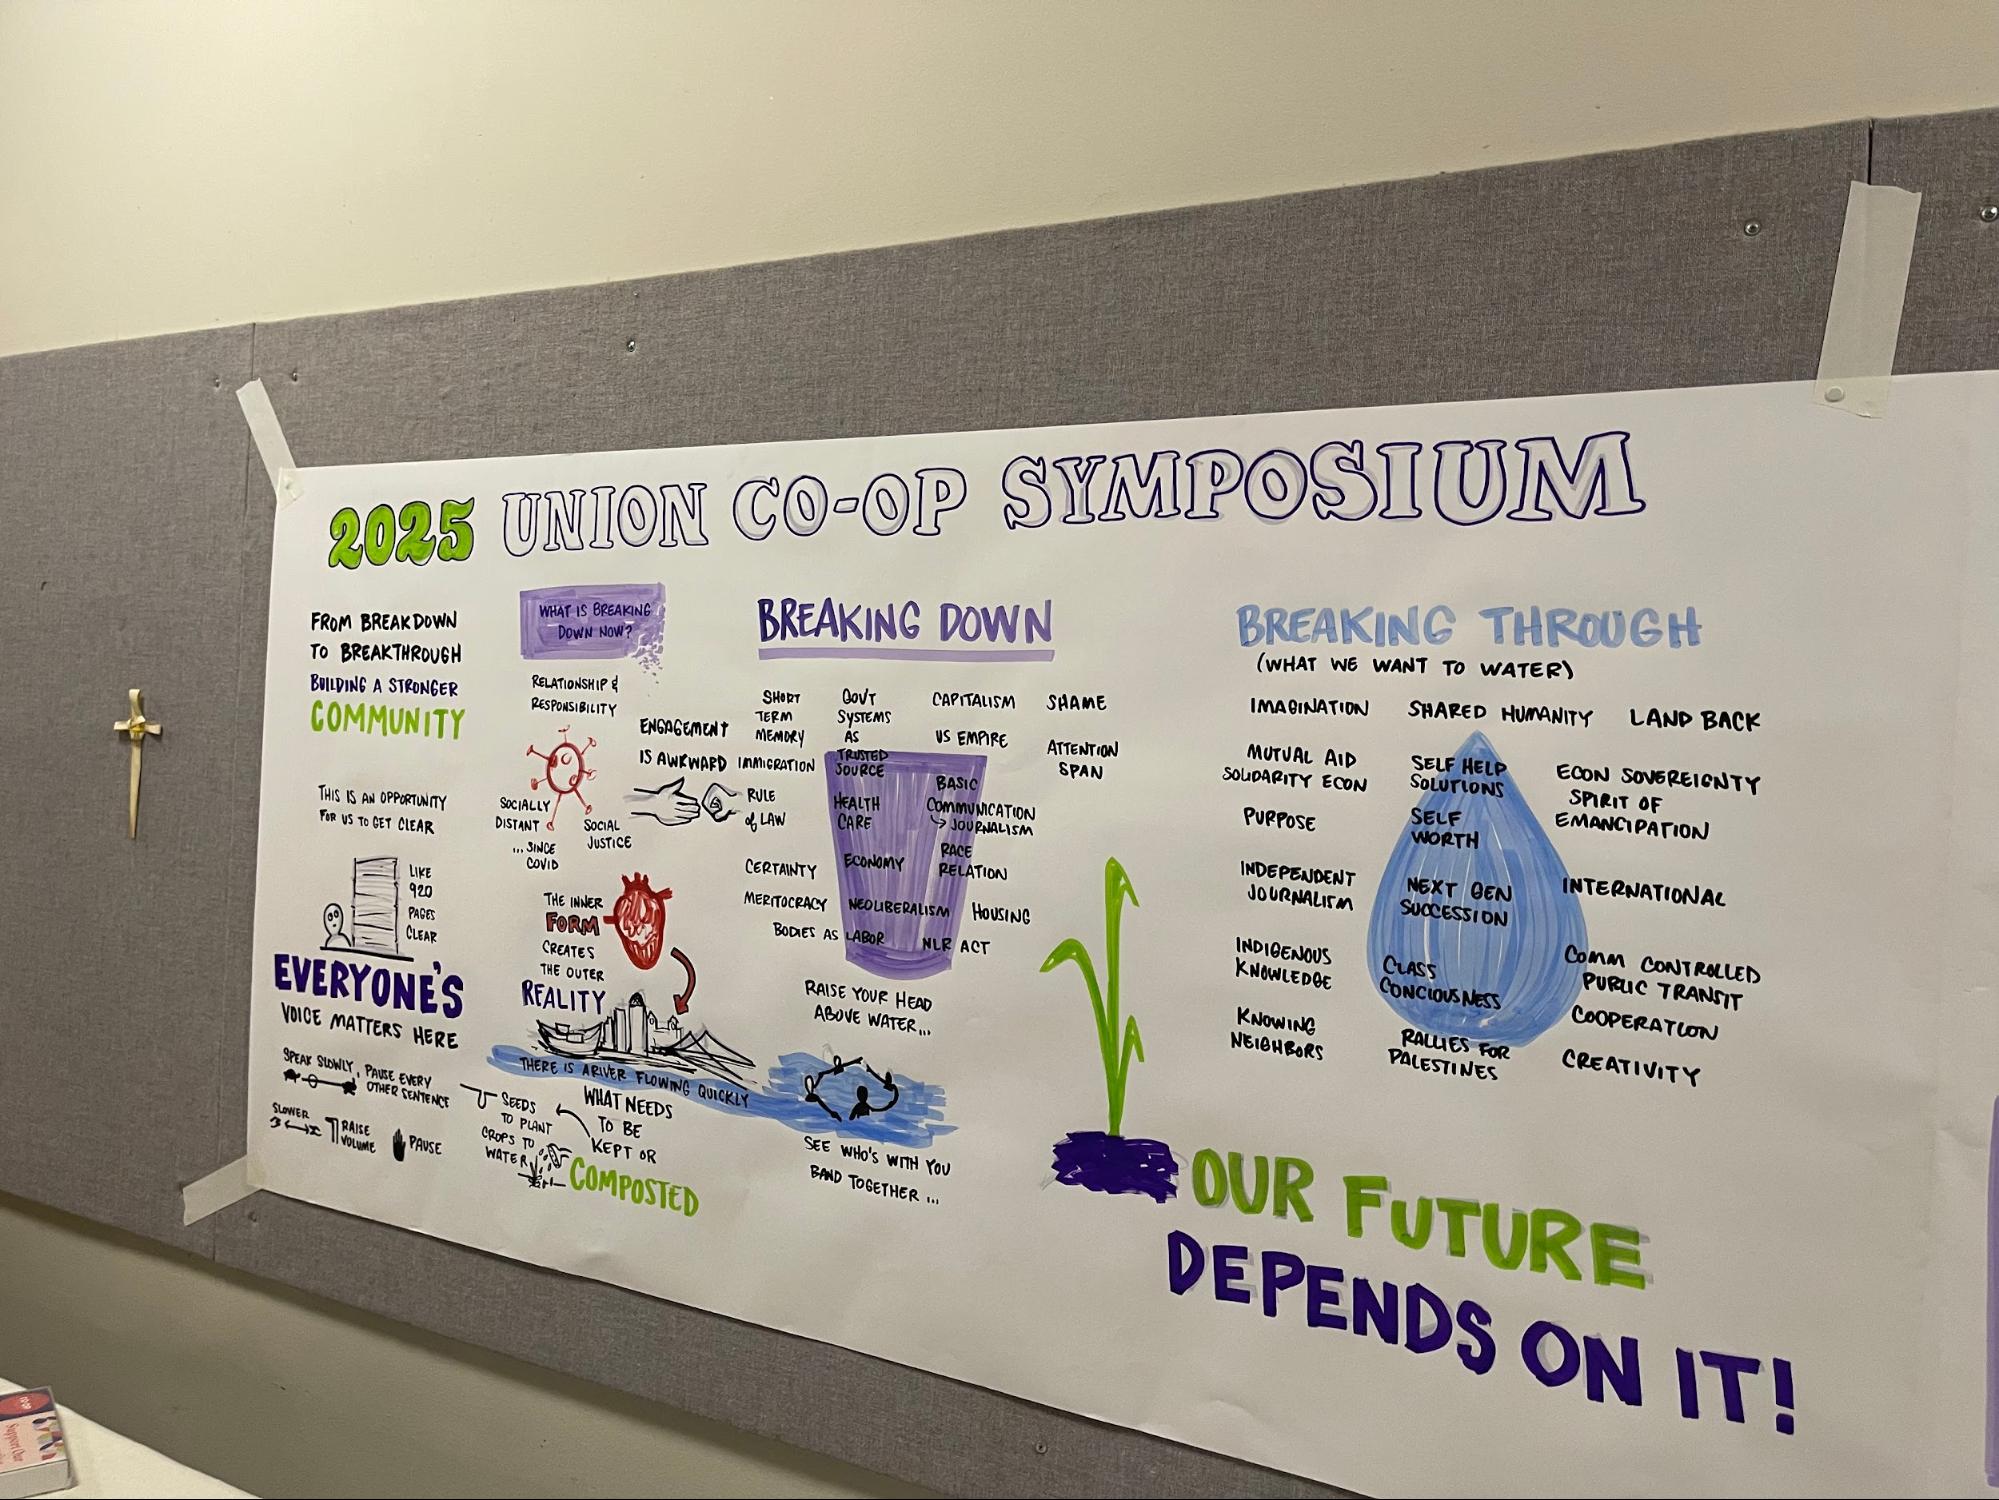 2025 UNION CO-OP SYMPOSIUM
FROM BREAKDOWN
TO BREAKTHROUGH
BUILDING A STRONGER
COMMUNITY
THIS IS AN OPPORTUNITY
FOR US TO GET CLEAR
LIKE
920
PAGES
CLEAR
EVERYONE'S
VOICE MATTERS HERE
SPEAK SLOWLY, PAUSE EVERY
OTHER SENTENCE
SLOWER
RAISE
VOLUME
PAUSE
WHAT IS BREAKING
DOWN NOW?
RELATIONSHIP &
RESPONSIBILITY
SOCIALLY
DISTANT
...SINCE
COVID
SOCIAL
JUSTICE
ENGAGEMENT
IS AWKWARD
THE INNER
FORM
CREATES
THE OUTER
REALITY
THERE IS A RIVER FLOWING QUICKLY
WHAT NEEDS
TO BE
KEPT OR
COMPOSTED
SEEDS
TO PLANT
CROPS TO
WATER
BREAKING DOWN
SHORT
TERM
MEMORY
GOV'T
SYSTEMS
AS
TRUSTED
SOURCE
CAPITALISM
SHAME
US EMPIRE
ATTENTION
SPAN
IMMIGRATION
RULE
of LAW
HEALTH
CARE
BASIC
COMMUNICATION
↳ JOURNALISM
CERTAINTY
ECONOMY
RACE
RELATION
MERITOCRACY
NEOLIBERALISM
HOUSING
BODIES AS LABOR
NLR ACT
RAISE YOUR HEAD
ABOVE WATER...
SEE WHO'S WITH YOU
BAND TOGETHER ...
BREAKING THROUGH
(WHAT WE WANT TO WATER)
IMAGINATION
SHARED HUMANITY
LAND BACK
MUTUAL AID
SOLIDARITY ECON
SELF HELP
SOLUTIONS
ECON SOVEREIGNTY
SPIRIT OF
EMANCIPATION
PURPOSE
SELF
WORTH
INDEPENDENT
JOURNALISM
NEXT GEN
SUCCESSION
INTERNATIONAL
INDIGENOUS
KNOWLEDGE
CLASS
CONCIOUSNESS
COMM CONTROLLED
PUBLIC TRANSIT
KNOWING
NEIGHBORS
RALLIES FOR
PALESTINES
COOPERATION
CREATIVITY
OUR FUTURE
DEPENDS ON IT!
Support Our